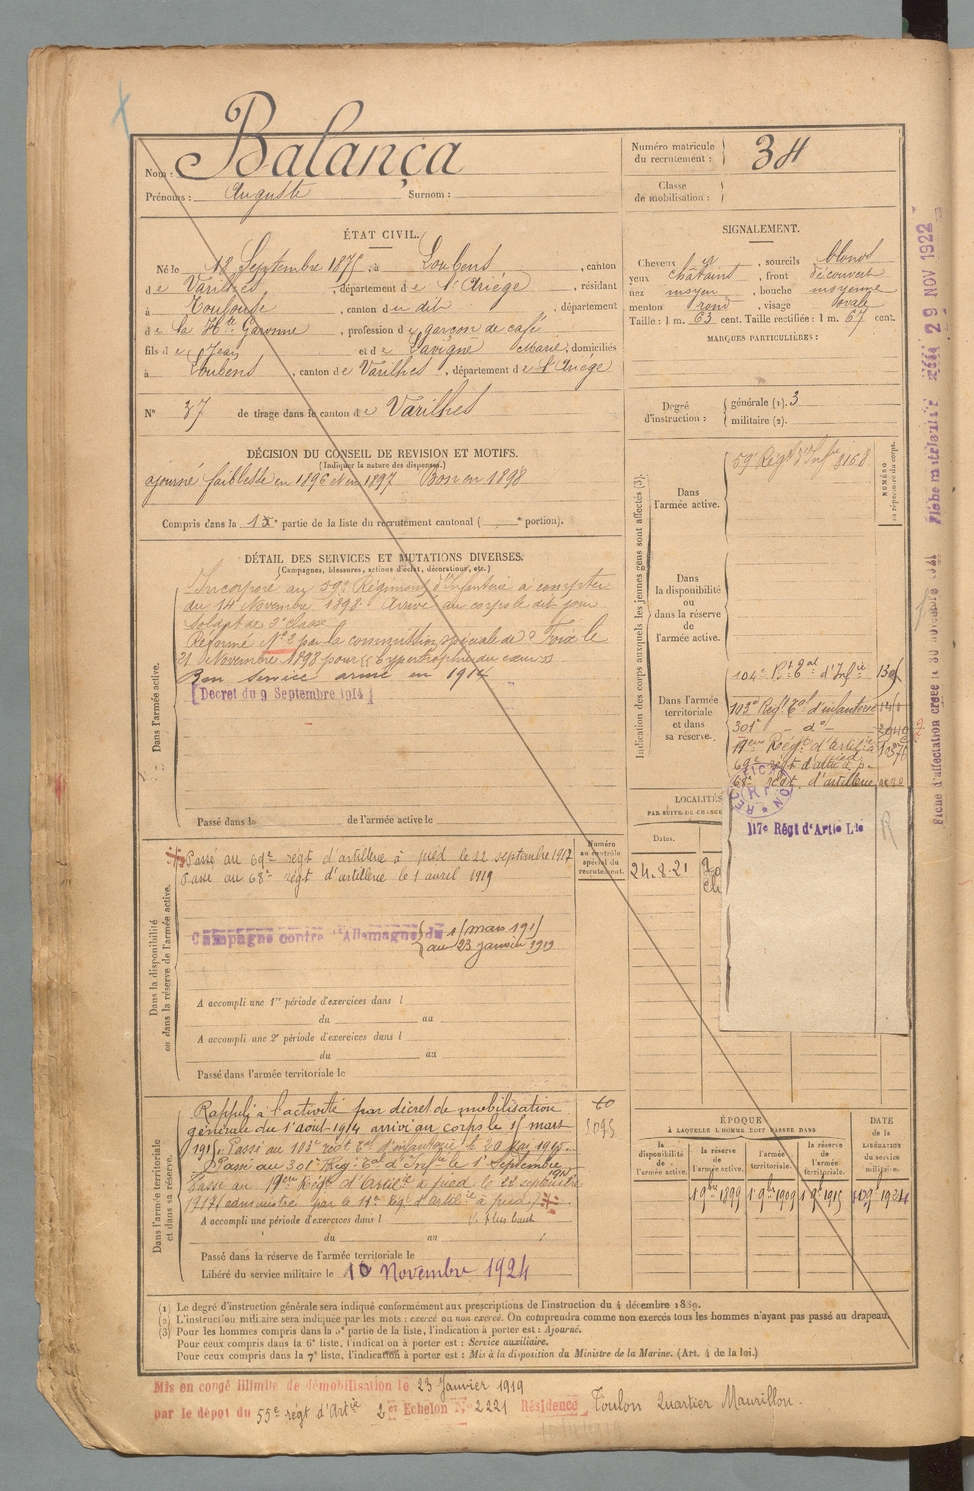 Nom : Balança
Prénoms : Auguste Surnom :
Numéro matricule
du recrutement : 34
Classe
de mobilisation :
ÉTAT CIVIL.
Né le 18 Septembre 1875, à Loubens, canton
de Varilhes, département de l'Ariège, résidant
à Toulouse, canton du dit, département
de la Hte Garonne, profession de garçon de café
fils de Jean et de Lavigne Marie, domiciliés
à Loubens, canton de Varilhes, département de l'Ariège
N° 37 de tirage dans le canton de Varilhes
SIGNALEMENT.
Cheveux et, sourcils blonds
yeux châtains, front découvert
nez moyen, bouche moyenne
menton rond, visage ovale
Taille : 1 m. 63 cent. Taille rectifiée : 1 m. 67 cent.
MARQUES PARTICULIÈRES :
Degré
d'instruction :
générale (1). 3
militaire (2).
DÉCISION DU CONSEIL DE REVISION ET MOTIFS.
(Indiquer la nature des dispenses.)
ajourné faiblesse en 1896 et en 1897 Bon en 1898
Compris dans la 1e partie de la liste du recrutement cantonal ( e portion).
DÉTAIL DES SERVICES ET MUTATIONS DIVERSES.
(Campagnes, blessures, actions d'éclat, décorations, etc.)
Dans l'armée active.
Incorporé au 59e Régiment d'Infanterie à compter
du 14 Novembre 1898. Arrivé au corps le dit jour
Soldat de 2e classe
Réformé N°2 par la commission spéciale de Foix le
21 Novembre 1898 pour "Hypertrophie du cœur"
Bon service armé en 1914
[Décret du 9 Septembre 1914]
Passé dans la de l'armée active le
Indication des corps auxquels les jeunes gens sont affectés (3).
NUMÉRO
au répertoire du corps.
Dans
l'armée active.
59e Régt d'Infie 3168
Dans
la disponibilité
ou
dans la réserve
de
l'armée active.
Dans l'armée
territoriale
et dans
sa réserve.
104e Rt Eal d'Infie
103e Régt Eal d'infanterie
301e - do -
19eme Régt d'artilie
69e régt d'artie à p-
68e régt d'artillerie
117e Régt d'Artie Lde
LOCALITÉS
PAR SUITE DE CHANGE
Dates.
24.8.21
Dans la disponibilité
ou dans la réserve de l'armée active.
Numéro
au contrôle
spécial du
recrutement.
Passé au 69e régt d'artillerie à pied le 22 septembre 1917
Passé au 68e régt d'artillerie le 1 avril 1919
Campagne contre l'Allemagne du 1[ mars 191]
au 23 janvier 1919
A accompli une 1re période d'exercices dans l
du au
A accompli une 2e période d'exercices dans l
du au
Passé dans l'armée territoriale le
Dans l'armée territoriale
et dans sa réserve.
Rappelé à l'activité par décret de mobilisation
générale du 1er août 1914 arrivé au corps le 15 mars
1915. Passé au 103e régt Eal d'infanterie le 20 Mai 1915.
Passé au 301e Régt Eal d'Infie le 1er Septembre
Passé au 19eme Régt d'Artilie le 22 septembre
1917 (administré par le 11e Régt d'Artilie à pied)
A accompli une période d'exercices dans l plus haut
du au
Passé dans la réserve de l'armée territoriale le
Libéré du service militaire le 10 Novembre 1924
ÉPOQUE
À LAQUELLE L'HOMME DOIT PASSER DANS
la disponibilité de l'armée active.
la réserve de l'armée active.
l'armée territoriale.
la réserve de l'armée territoriale.
DATE
de la
LIBÉRATION
du service
militaire.
1 9bre 1899 1 9bre 1909 1 9bre 1915
(1) Le degré d'instruction générale sera indiqué conformément aux prescriptions de l'instruction du 4 décembre 1889.
(2) L'instruction militaire sera indiquée par les mots : exercé ou non exercé. On comprendra comme non exercés tous les hommes n'ayant pas passé au drapeau.
(3) Pour les hommes compris dans la 5e partie de la liste, l'indication à porter est : Ajourné.
Pour ceux compris dans la 6e liste, l'indication à porter est : Service auxiliaire.
Pour ceux compris dans la 7e liste, l'indication à porter est : Mis à la disposition du Ministre de la Marine. (Art. 4 de la loi.)
Mis en congé illimité de démobilisation le 23 Janvier 1919
par le dépôt du 55e régt d'Artie 2e Echelon N° 2221 Résidence Toulon Quartier Mourillon.
Fiche d'affectation créée le 30 novembre 1921
29 NOV 1922